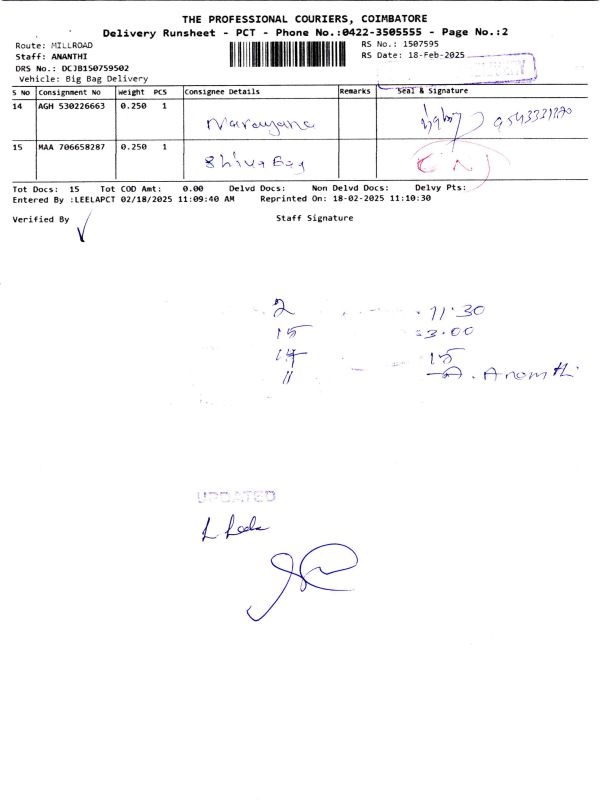 THE PROFESSIONAL COURIERS, COIMBATORE
Delivery Runsheet - PCT - Phone No.:0422-3505555 - Page No.:2
Route: MILLROAD
RS No.: 1507595
Staff: ANANTHI
RS Date: 18-Feb-2025
DRS No.: DCJB150759502
Vehicle: Big Bag Delivery
S No Consignment No Weight PCS Consignee Details Remarks Seal & Signature
14 AGH 530226663 0.250 1
Narayana
15 MAA 706658287 0.250 1
Shiva Bag
Tot Docs: 15 Tot COD Amt: 0.00 Delvd Docs: Non Delvd Docs: Delvy Pts:
Entered By :LEELAPCT 02/18/2025 11:09:40 AM Reprinted On: 18-02-2025 11:10:30
Verified By Staff Signature
2 11.30
15 3.00
14 15
11 A. Ananthi
UPDATED
L Leela